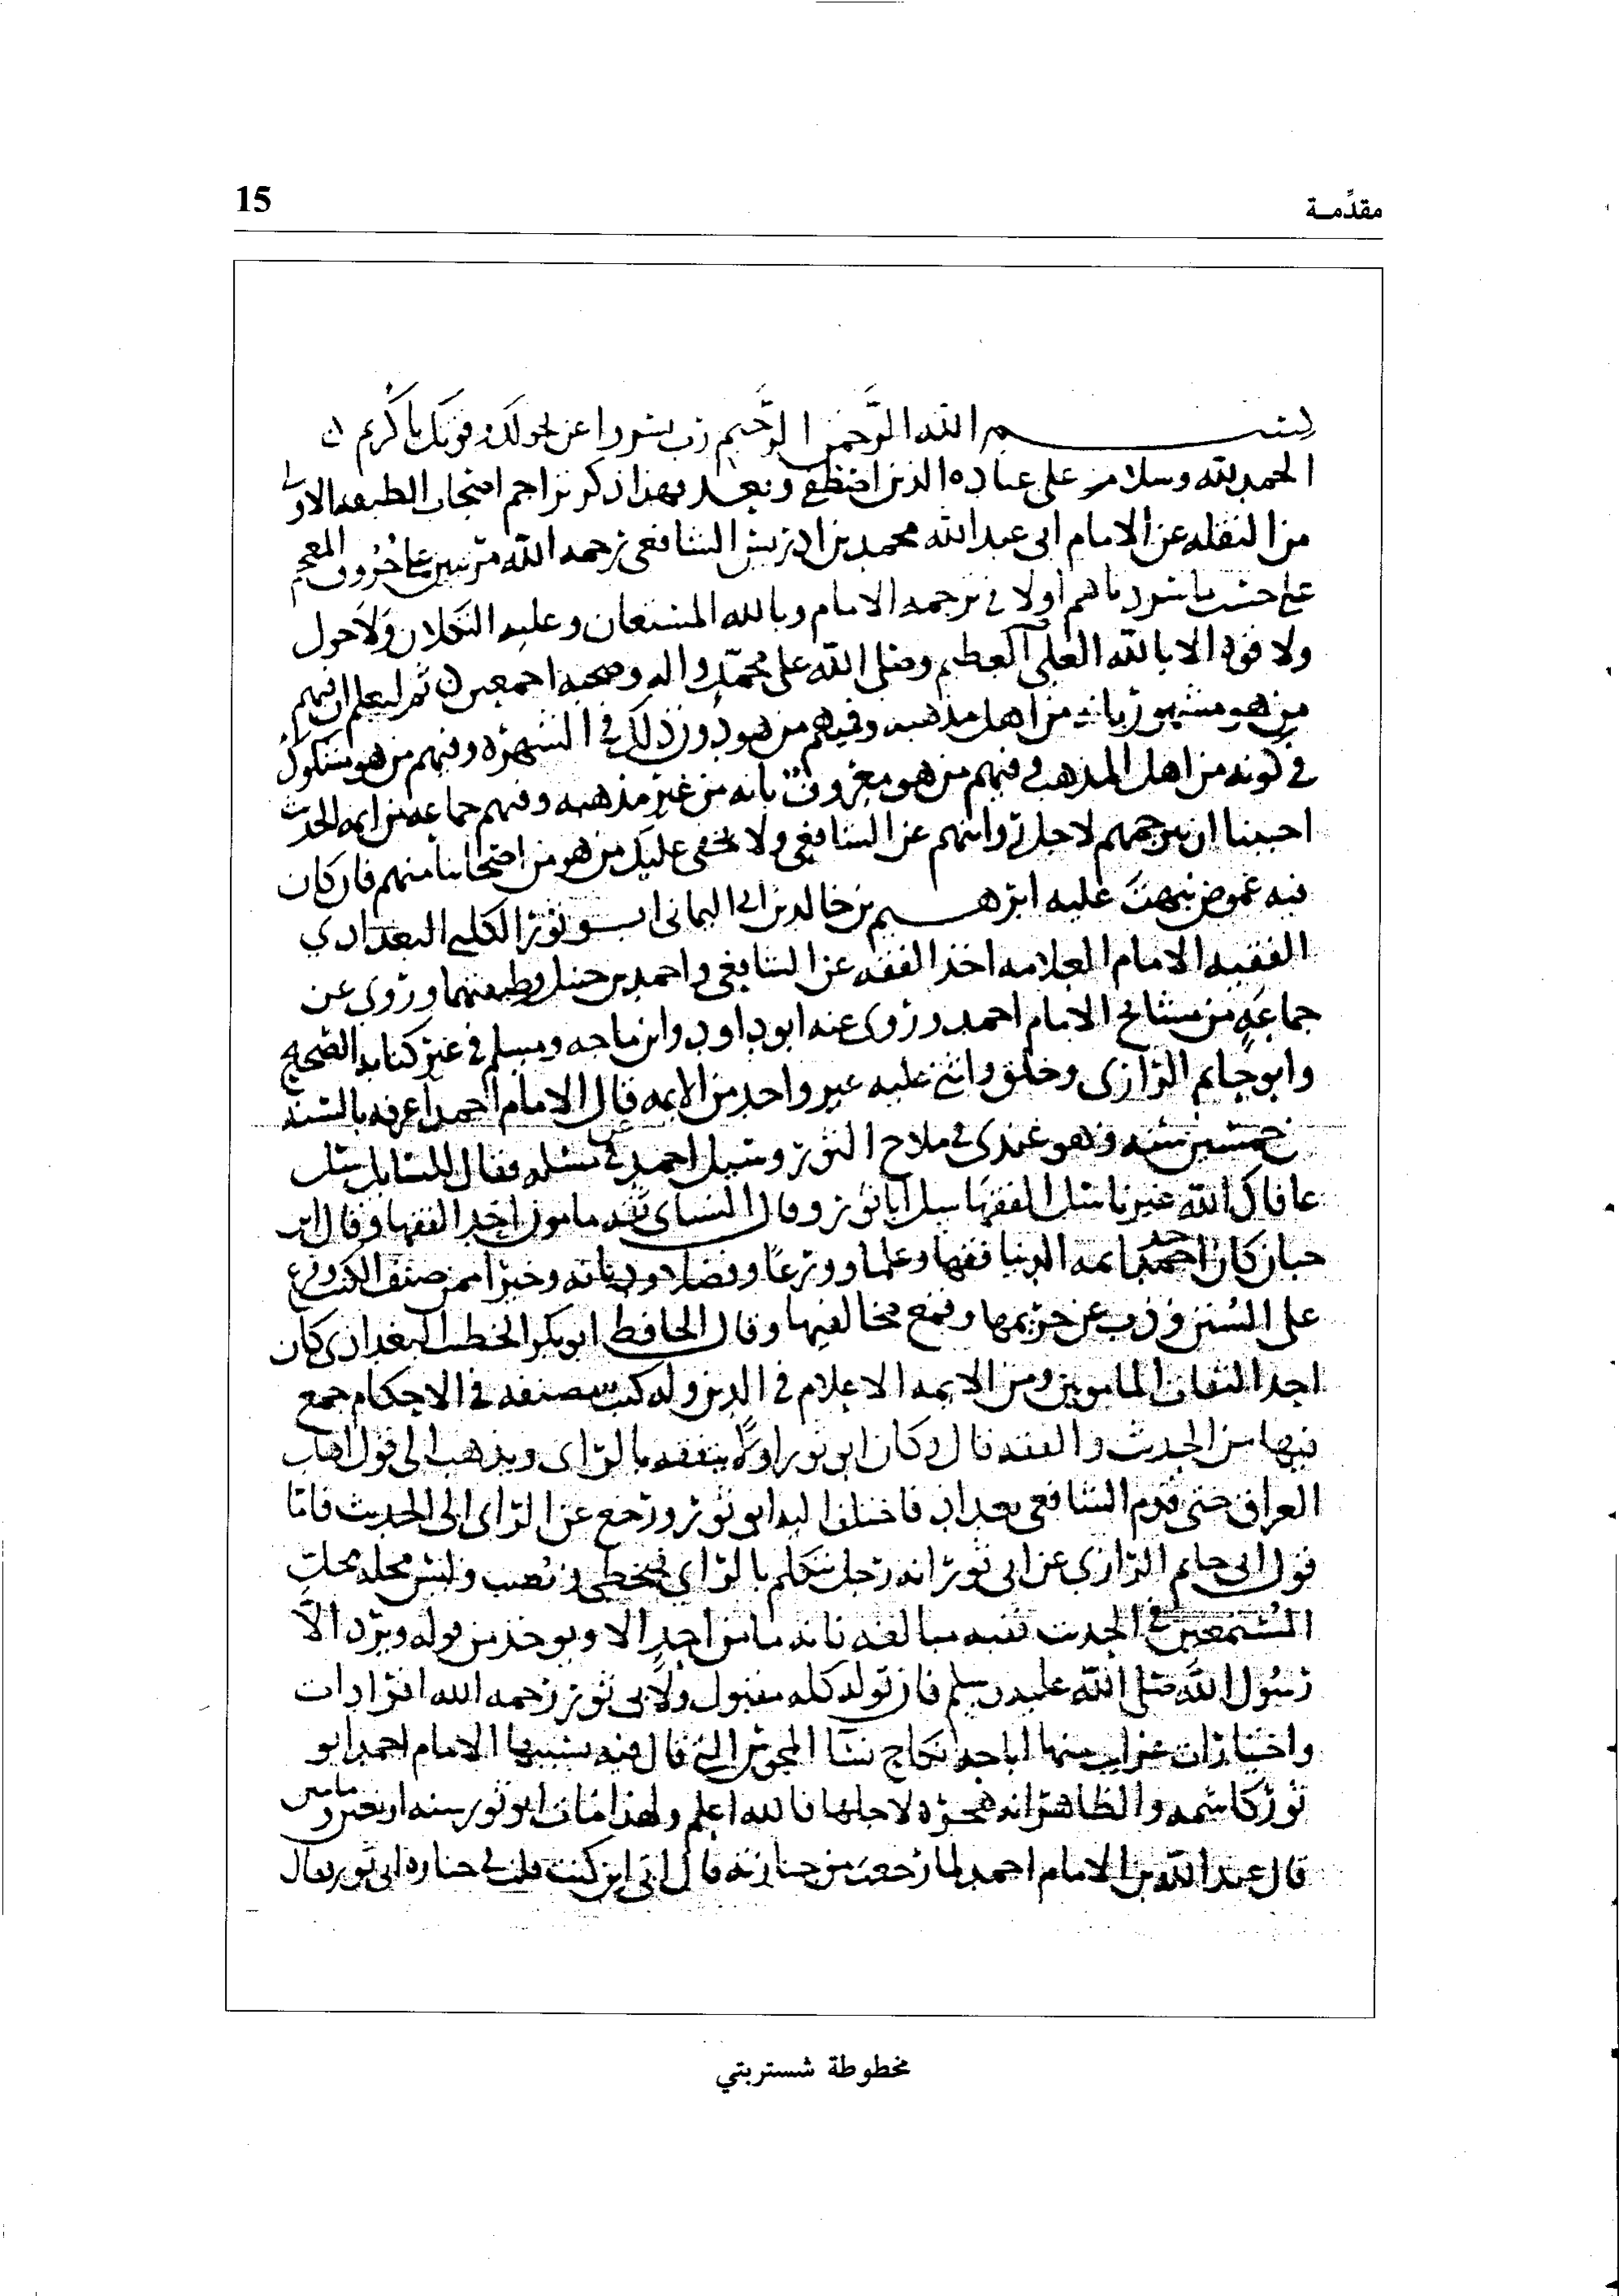 مقدِّمـة
15
بسم الله الرَّحمن الرَّحيم رب يسر واعن بحولك وقوتك يا كريم
الحمد لله وسلام على عباده الذين اصطفى وبعد فهذا ذكر تراجم اصحاب الطبقه الاولى
من النقله عن الامام ابى عبد الله محمد بن ادريس الشافعى رحمه الله مرتبين على حروف المعجم
على حسب ما سردناهم اولا فى ترجمه الامام وبالله المستعان وعليه التكلان ولا حول
ولا قوه الا بالله العلى العظيم وصلى الله على محمد واله وصحبه اجمعين ثم ليعلم ان فيهم
من هو مشهور بانه من اهل مذهبه وفيهم من هو دون ذلك فى الشهره وفيهم من هو مشكوك
فى كونه من اهل المذهب وفيهم من هو معروف بانه من غير مذهبه وفيهم جماعه من ايمه الحديث
احببنا ان نترجمهم لاجل روايتهم عن الشافعى ولا يخفى عليك من هو من اصحابنا منهم فان كان
فيه غموض نبهت عليه ابرهيم بن خالد بن ابى اليمانى ابو ثور الكلبى البغدادي
الفقيه الامام العلامه اخذ الفقه عن الشافعى واحمد بن حنبل وطبقتهما وروى عن
جماعة من مشايخ الامام احمد وروى عنه ابو داود وابن ماجه ومسلم فى غير كتابه الصحيح
وابو حاتم الرازى وخلق واثنى عليه غير واحد من الايمه قال الامام احمد اعرفه بالسنه
خمسين سنه وهو عندى فى مسلاخ الثورى وسيل احمد عن مسئله فقال للسايل سل
عافاك الله غيرنا سل الفقها سل ابا ثور وقال النساى ثقه مامون احد الفقها وقال ابن
حبان كان احد ايمه الدنيا فقها وعلما وورعا وفضلا وديانه وخيرا ممن صنف الكتب وفرع
على السنن وذب عن حريمها وقمع مخالفيها وقال الحافظ ابو بكر الخطيب البغدادى كان
احد الثقات المامونين ومن الايمه الاعلام فى الدين وله كتب مصنفه فى الاحكام جمع
فيها من الحديث والفقه قال وكان ابو ثور اولا يتفقه بالراى ويذهب الى قول اهل
العراق حتى قدم الشافعى بغداد فاختلف اليه ابو ثور ورجع عن الراى الى الحديث فاما
قول ابى حاتم الرازى عن ابى ثور انه رجل يتكلم بالراى فيخطى ويصيب وليس محله محل
المتسعين فى الحديث ففيه مبالغه فانه ما من احد الا ويوخذ من قوله ويرد الا
رسول الله صلى الله عليه وسلم فان قوله كله مقبول ولابى ثور رحمه الله افرادات
واختيارات غرايب منها اباحه نكاح نسا المجوس التى قال فيه بسببها الامام احمد ابو
ثور كاسمه والظاهر انه هجره لاجلها فالله اعلم ولهذا مات ابو ثور سنه اربعين ومايتين
قال عبد الله بن الامام احمد لما رجعت من جنازته قال ابى اين كنت قلت فى جنازه ابى ثور فقال
مخطوطة شستربتي